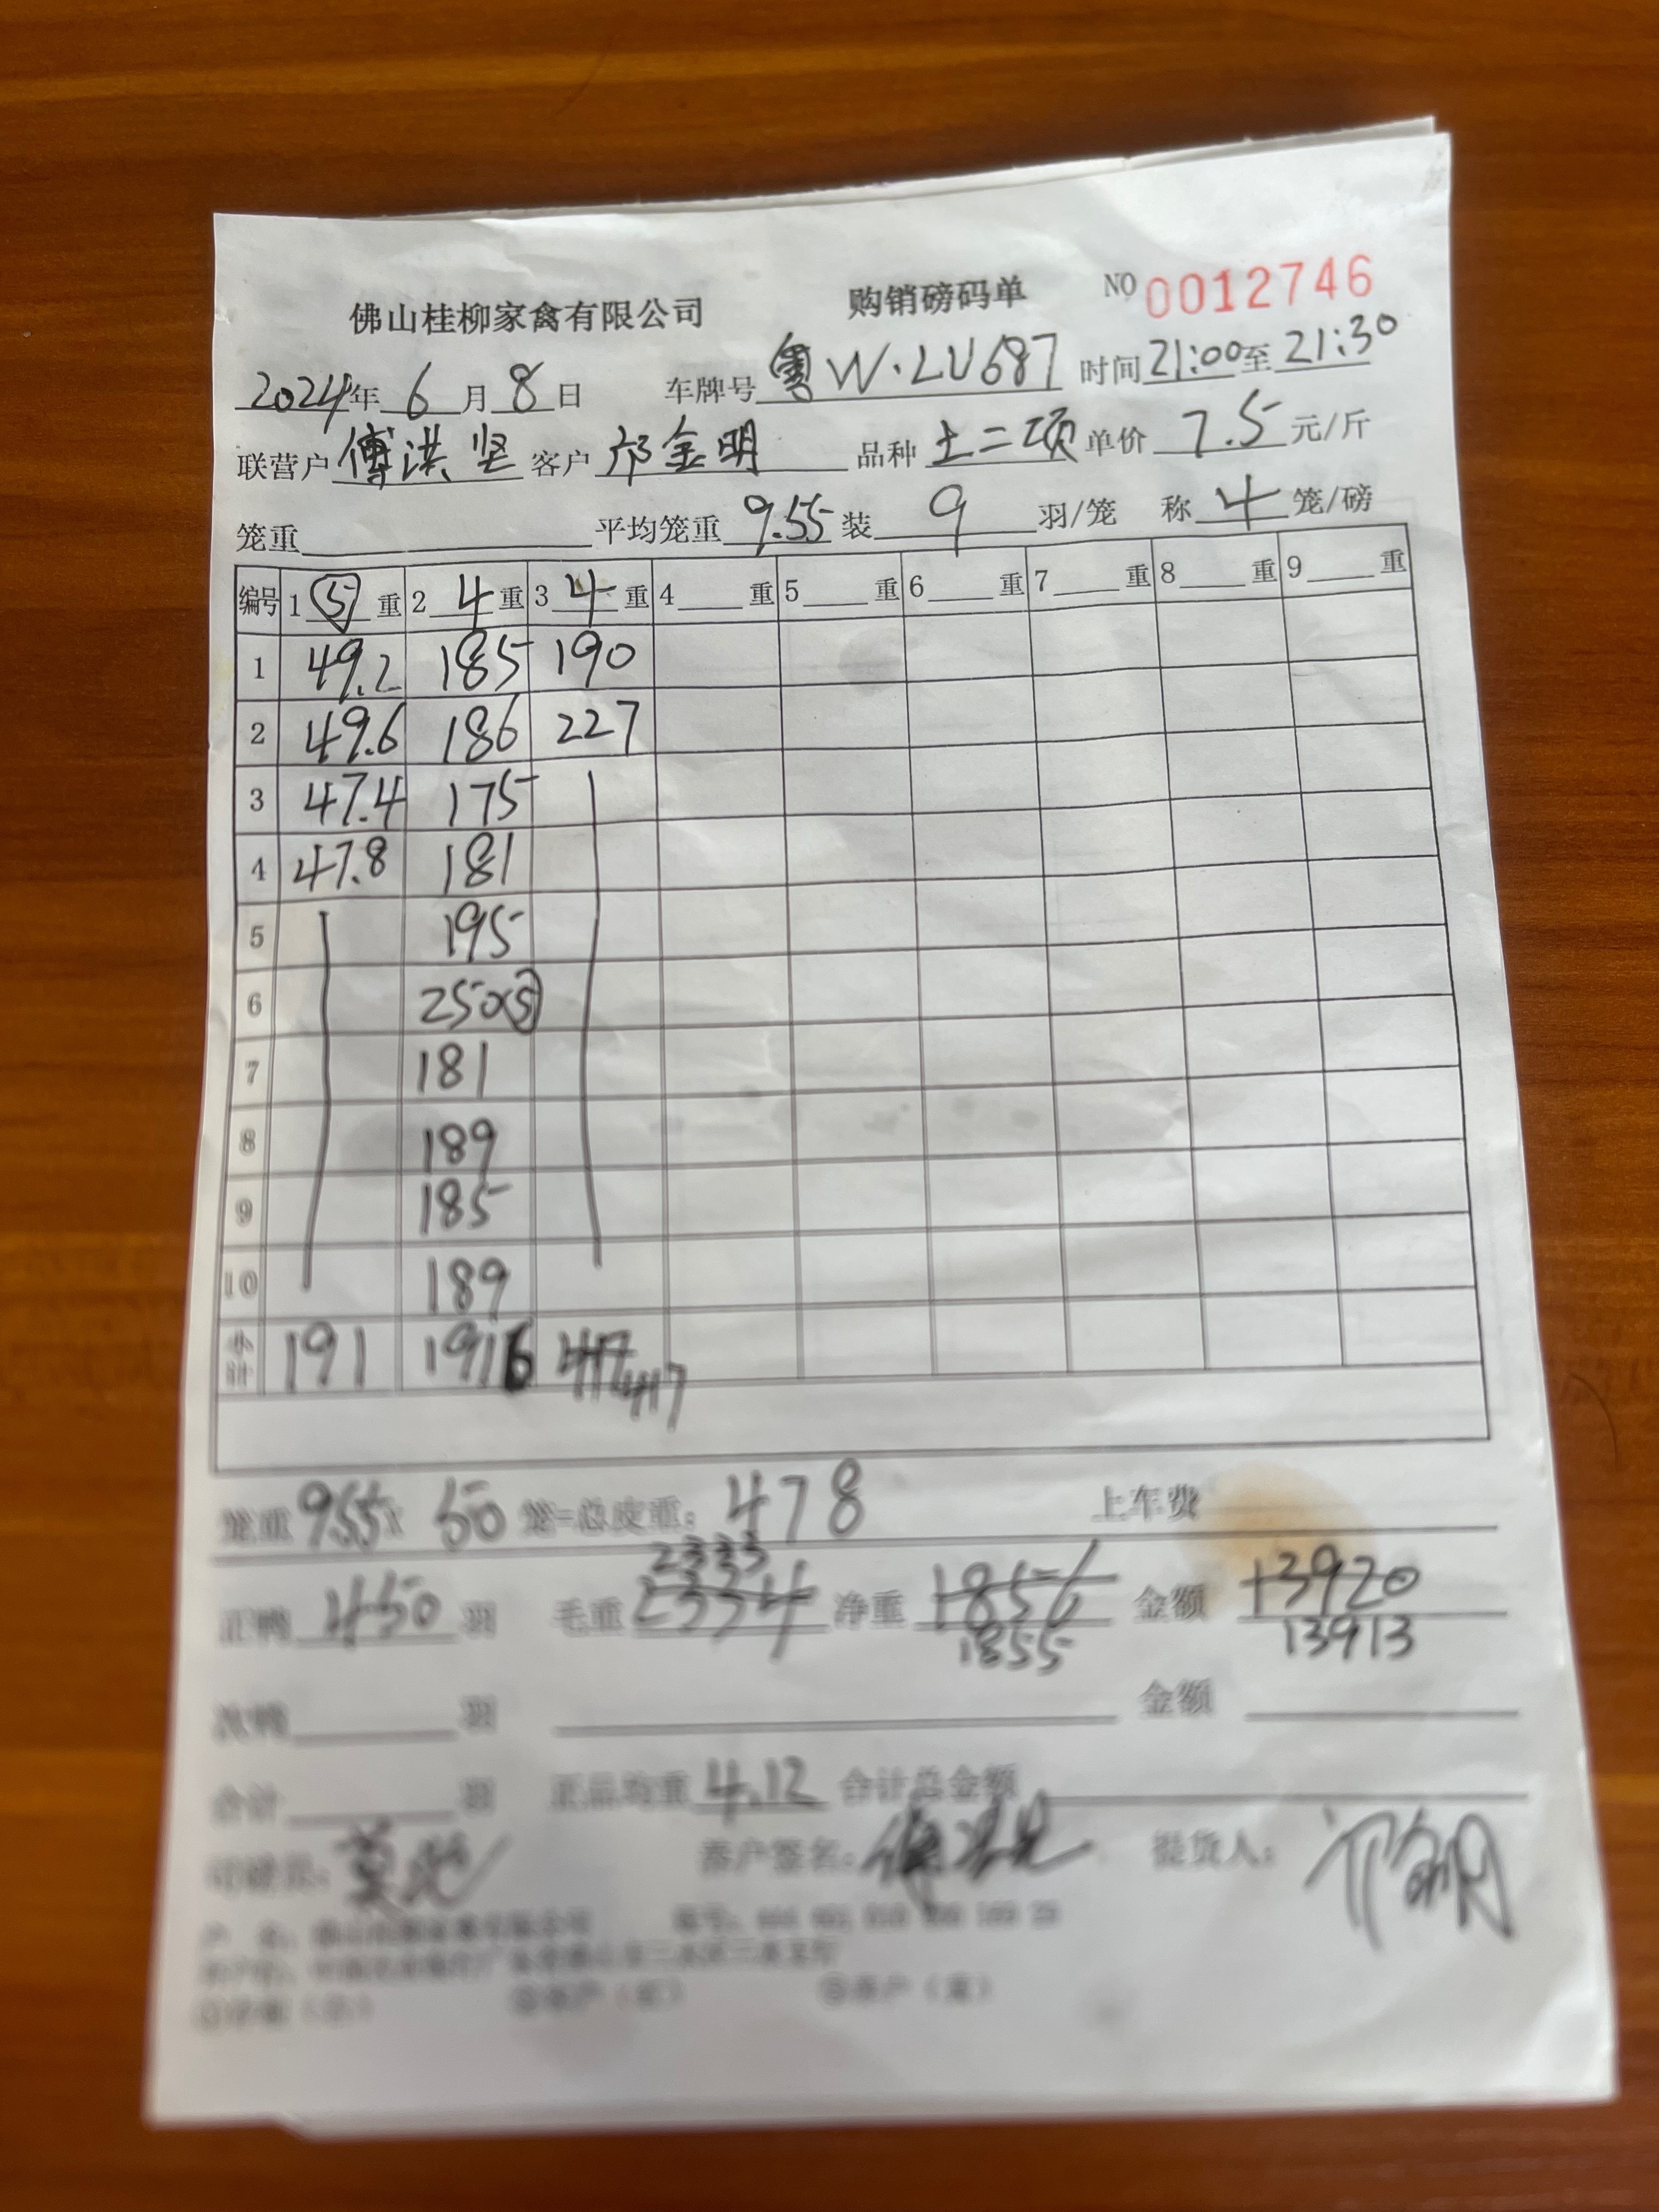 佛山桂柳家禽有限公司 购销磅码单 NO 0012746
2024年6月8日 车牌号 粤W·LU687 时间21:00至21:30
联营户 傅洪坚 客户 邝金明 品种 土二项 单价 7.5 元/斤
笼重 平均笼重 9.55 装 9 羽/笼 称 4 笼/磅
编号 1 ⑤ 重 2 4 重 3 4 重 4 重 5 重 6 重 7 重 8 重 9 重
1 49.2 185 190
2 49.6 186 227
3 47.4 175
4 47.8 181
5 195
6 250×⑤
7 181
8 189
9 185
10 189
小计 191 1916 417 417
笼重 9.55× 50 笼=总皮重: 478 上车费
2333
正鸭 450 羽 毛重 2334 净重 1856 金额 13920
1855 13913
次鸭 羽 金额
合计 羽 正品均重 4.12 合计总金额
司磅员: 养户签名: 傅洪坚 提货人: 邝金明